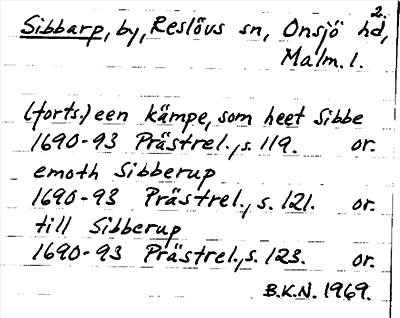 2.
Sibbarp, by, Reslövs sn, Onsjö hd,
Malm. l.
(forts.) een kämpe, som heet Sibbe
1690-93 Prästrel., s. 119. or.
emoth Sibberup
1690-93 Prästrel., s. 121. or.
till Sibberup
1690-93 Prästrel., s. 123. or.
B.K.N. 1969.